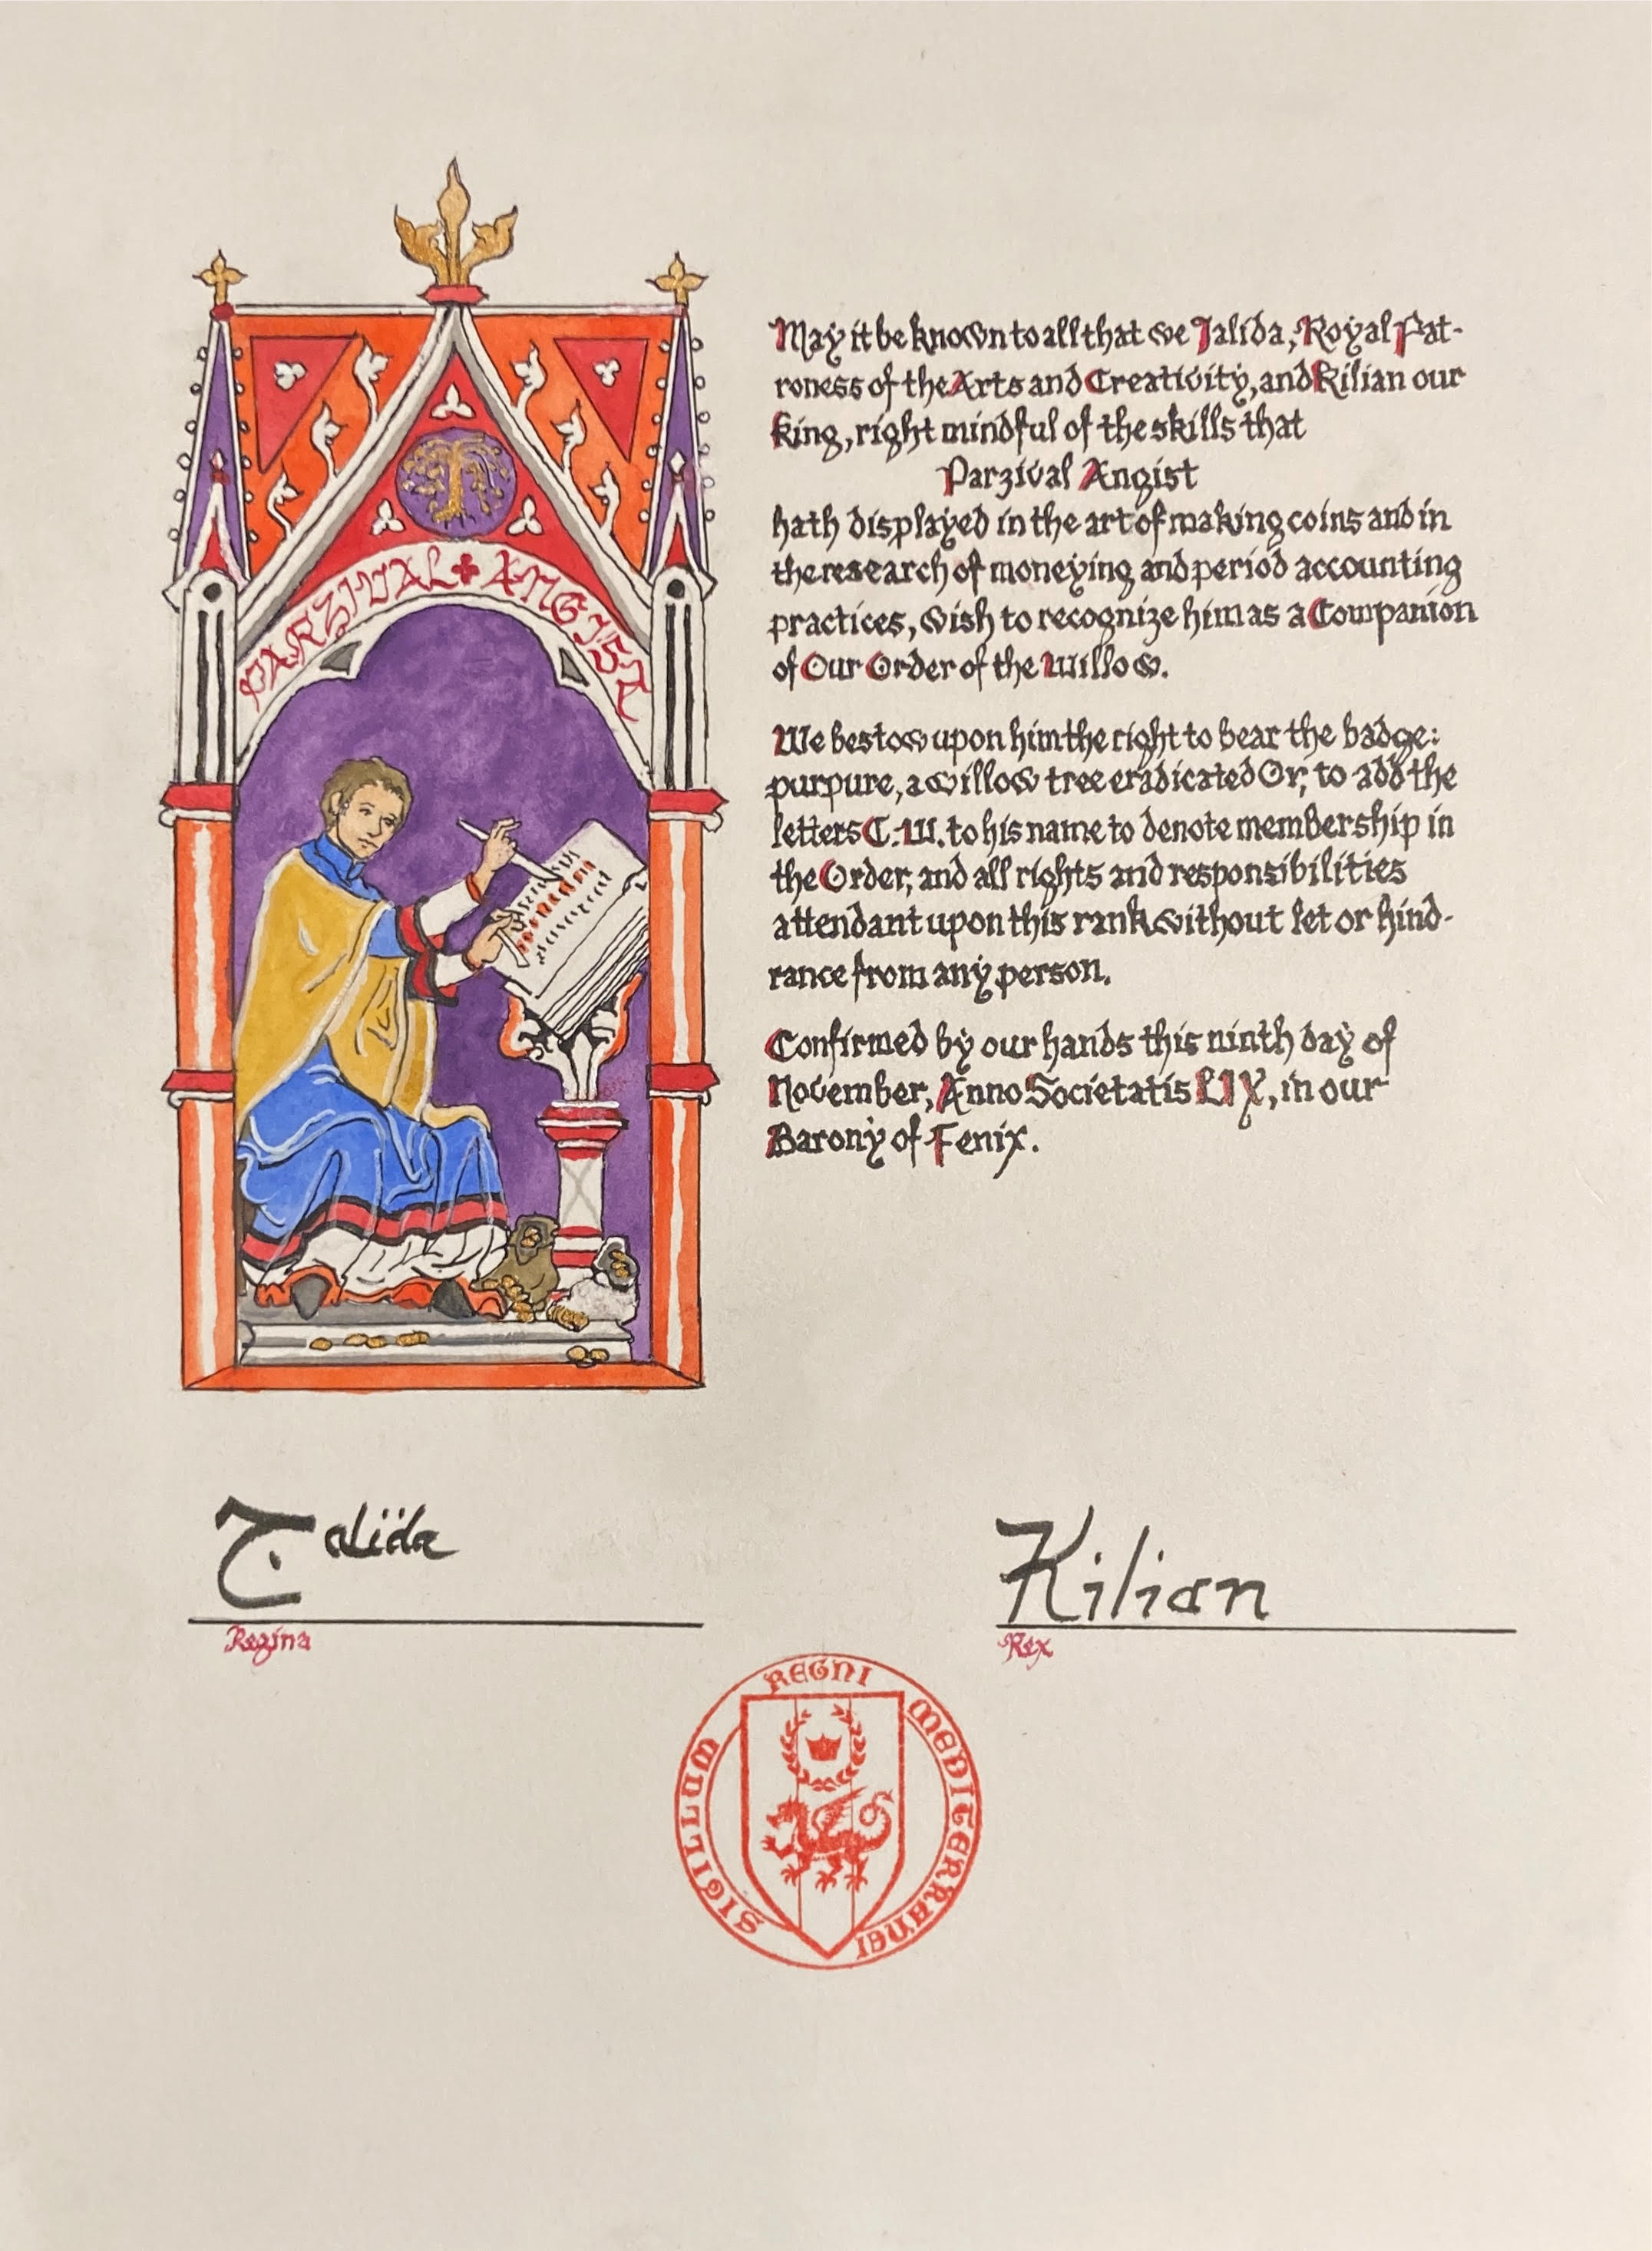 PARZIVAL ANGIST
May it be known to all that we Jalida, Royal Pat-
roness of the Arts and Creativity, and Kilian our
King, right mindful of the skills that
Parzival Angist
hath displayed in the art of making coins and in
the research of moneying and period accounting
practices, wish to recognize him as a Companion
of Our Order of the Willow.
We bestow upon him the right to bear the badge:
purpure, a willow tree eradicated Or, to add the
letters C.W. to his name to denote membership in
the Order, and all rights and responsibilities
attendant upon this rank without let or hind-
rance from any person.
Confirmed by our hands this ninth day of
November, Anno Societatis LIX, in our
Barony of Fenix.
جalida
Regina
Kilian
Rex
SIGILLUM REGNI MEDITERRANEI